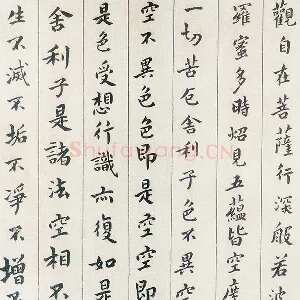 觀自在菩薩行深般若波
羅蜜多時炤見五蘊皆空度
一切苦厄舍利子色不異空
空不異色色即是空空即
是色受想行識亦復如是
舍利子是諸法空相不
生不滅不垢不淨不增
Shufawang.CN